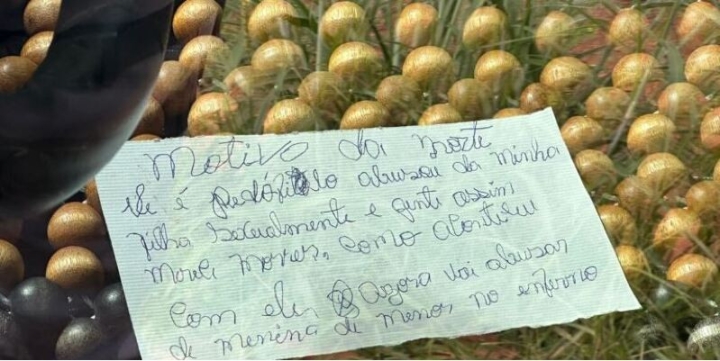 Motivo da morte
ele é pedófilo abusou da minha
filha sexualmente e gente assim
merece morrer, como aconteceu
com ele, agora vai abusar
de menina de menor no inferno